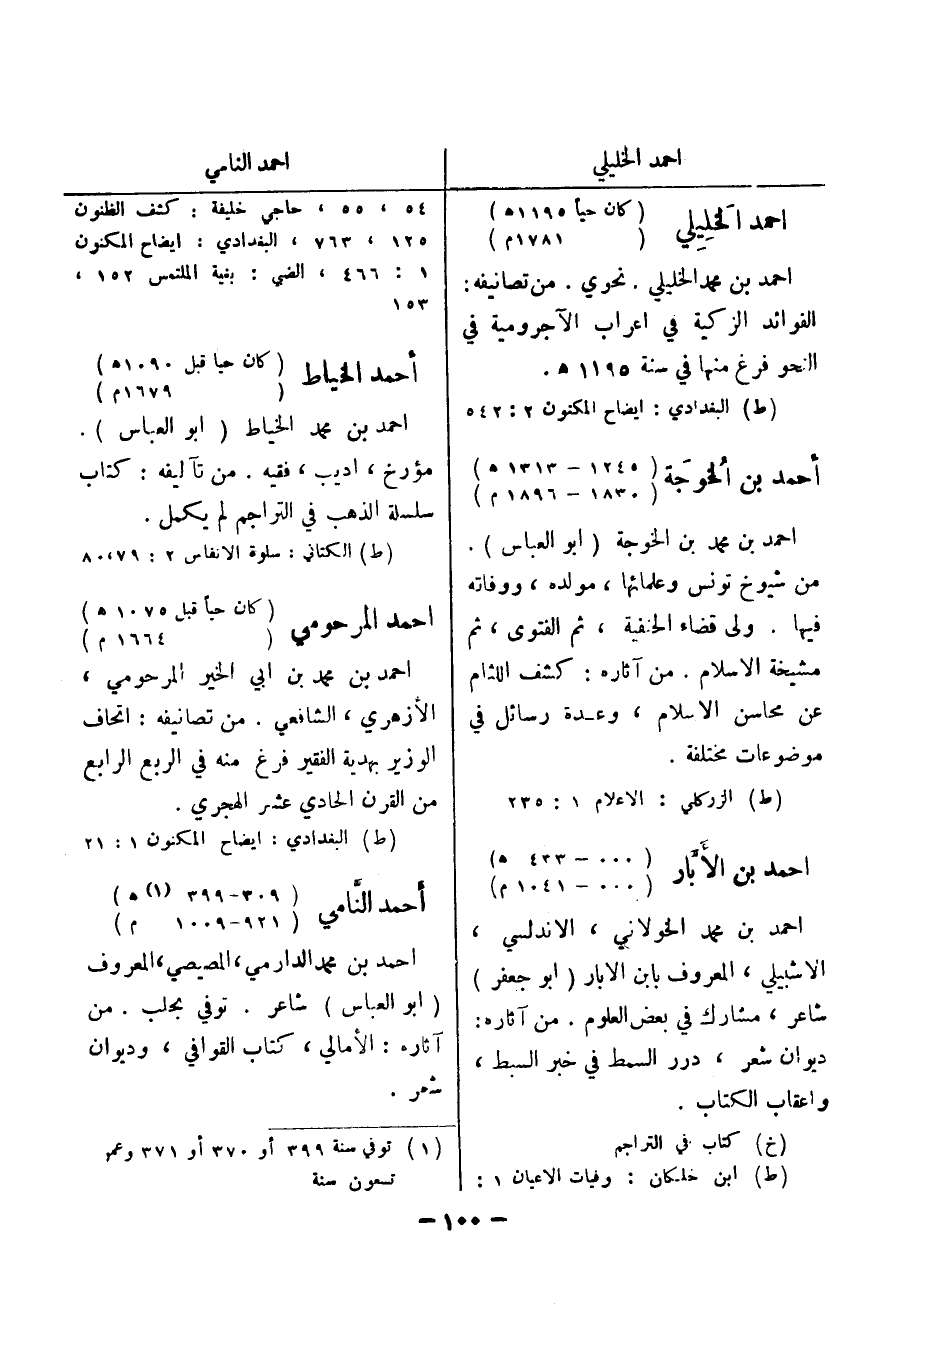 احمد الخليلي
احمد الخَلِيلي
( كان حياً ١١٩٥ ه )
( ١٧٨١م )
احمد بن محمد الخليلي . نحوي . من تصانيفه :
الفوائد الزكية في اعراب الآجرومية في
النحو فرغ منها في سنة ١١٩٥ ه .
(ط) البغدادي : ايضاح المكنون ٢ : ٥٤٢
أحمد بن الُخوجَة
( ١٢٤٥ – ١٣١٣ ه )
( ١٨٣٠ – ١٨٩٦ م )
احمد بن محمد بن الخوجة ( ابو العباس ) .
من شيوخ تونس وعلمائها ، مولده ، ووفاته
فيها . ولى قضاء الحنفية ، ثم الفتوى ، ثم
مشيخة الاسلام . من آثاره : كشف اللثام
عن محاسن الاسلام ، وعدة رسائل في
موضوعات مختلفة .
(ط) الزركلي : الاعلام ١ : ٢٣٥
احمد بن الأبَّار
( ٠٠٠ – ٤٣٣ ه )
( ٠٠٠ – ١٠٤١ م )
احمد بن محمد الخولاني ، الاندلسي ،
الاشبيلي ، المعروف بابن الابار ( ابو جعفر )
شاعر ، مشارك في بعض العلوم . من آثاره :
ديوان شعر ، درر السمط في خبر السبط ،
واعقاب الكتاب .
(خ) كتاب في التراجم
(ط) ابن خلكان : وفيات الاعيان ١ :
احمد النامي
٥٤ ، ٥٥ ، حاجي خليفة : كشف الظنون
١٢٥ ، ٧٦٣ ، البغدادي : ايضاح المكنون
١ : ٤٦٦ ، الضبي : بغية الملتمس ١٥٢ ،
١٥٣
أحمد الخياط
( كان حيا قبل ١٠٩٠ ه )
( ١٦٧٩م )
احمد بن محمد الخياط ( ابو العباس ) .
مؤرخ ، اديب ، فقيه . من تآليفه : كتاب
سلسلة الذهب في التراجم لم يكمل .
(ط) الكتاني : سلوة الانفاس ٢ : ٧٩ ، ٨٠
احمد المرحومي
( كان حياً قبل ١٠٧٥ ه )
( ١٦٦٤ م )
احمد بن محمد بن ابي الخير المرحومي ،
الأزهري ، الشافعي . من تصانيفه : اتحاف
الوزير بهدية الفقير فرغ منه في الربع الرابع
من القرن الحادي عشر الهجري .
(ط) البغدادي : ايضاح المكنون ١ : ٢١
أحمد النَّامي
( ٣٠٩–٣٩٩ (١) ه )
( ٩٢١–١٠٠٩ م )
احمد بن محمد الدارمي ، المصيصي ، المعروف
( ابو العباس ) شاعر . توفي بحلب . من
آثاره : الأمالي ، كتاب القوافي ، وديوان
شعر .
(١) توفي سنة ٣٩٩ أو ٣٧٠ أو ٣٧١ وعمره
تسعون سنة
– ١٠٠ –